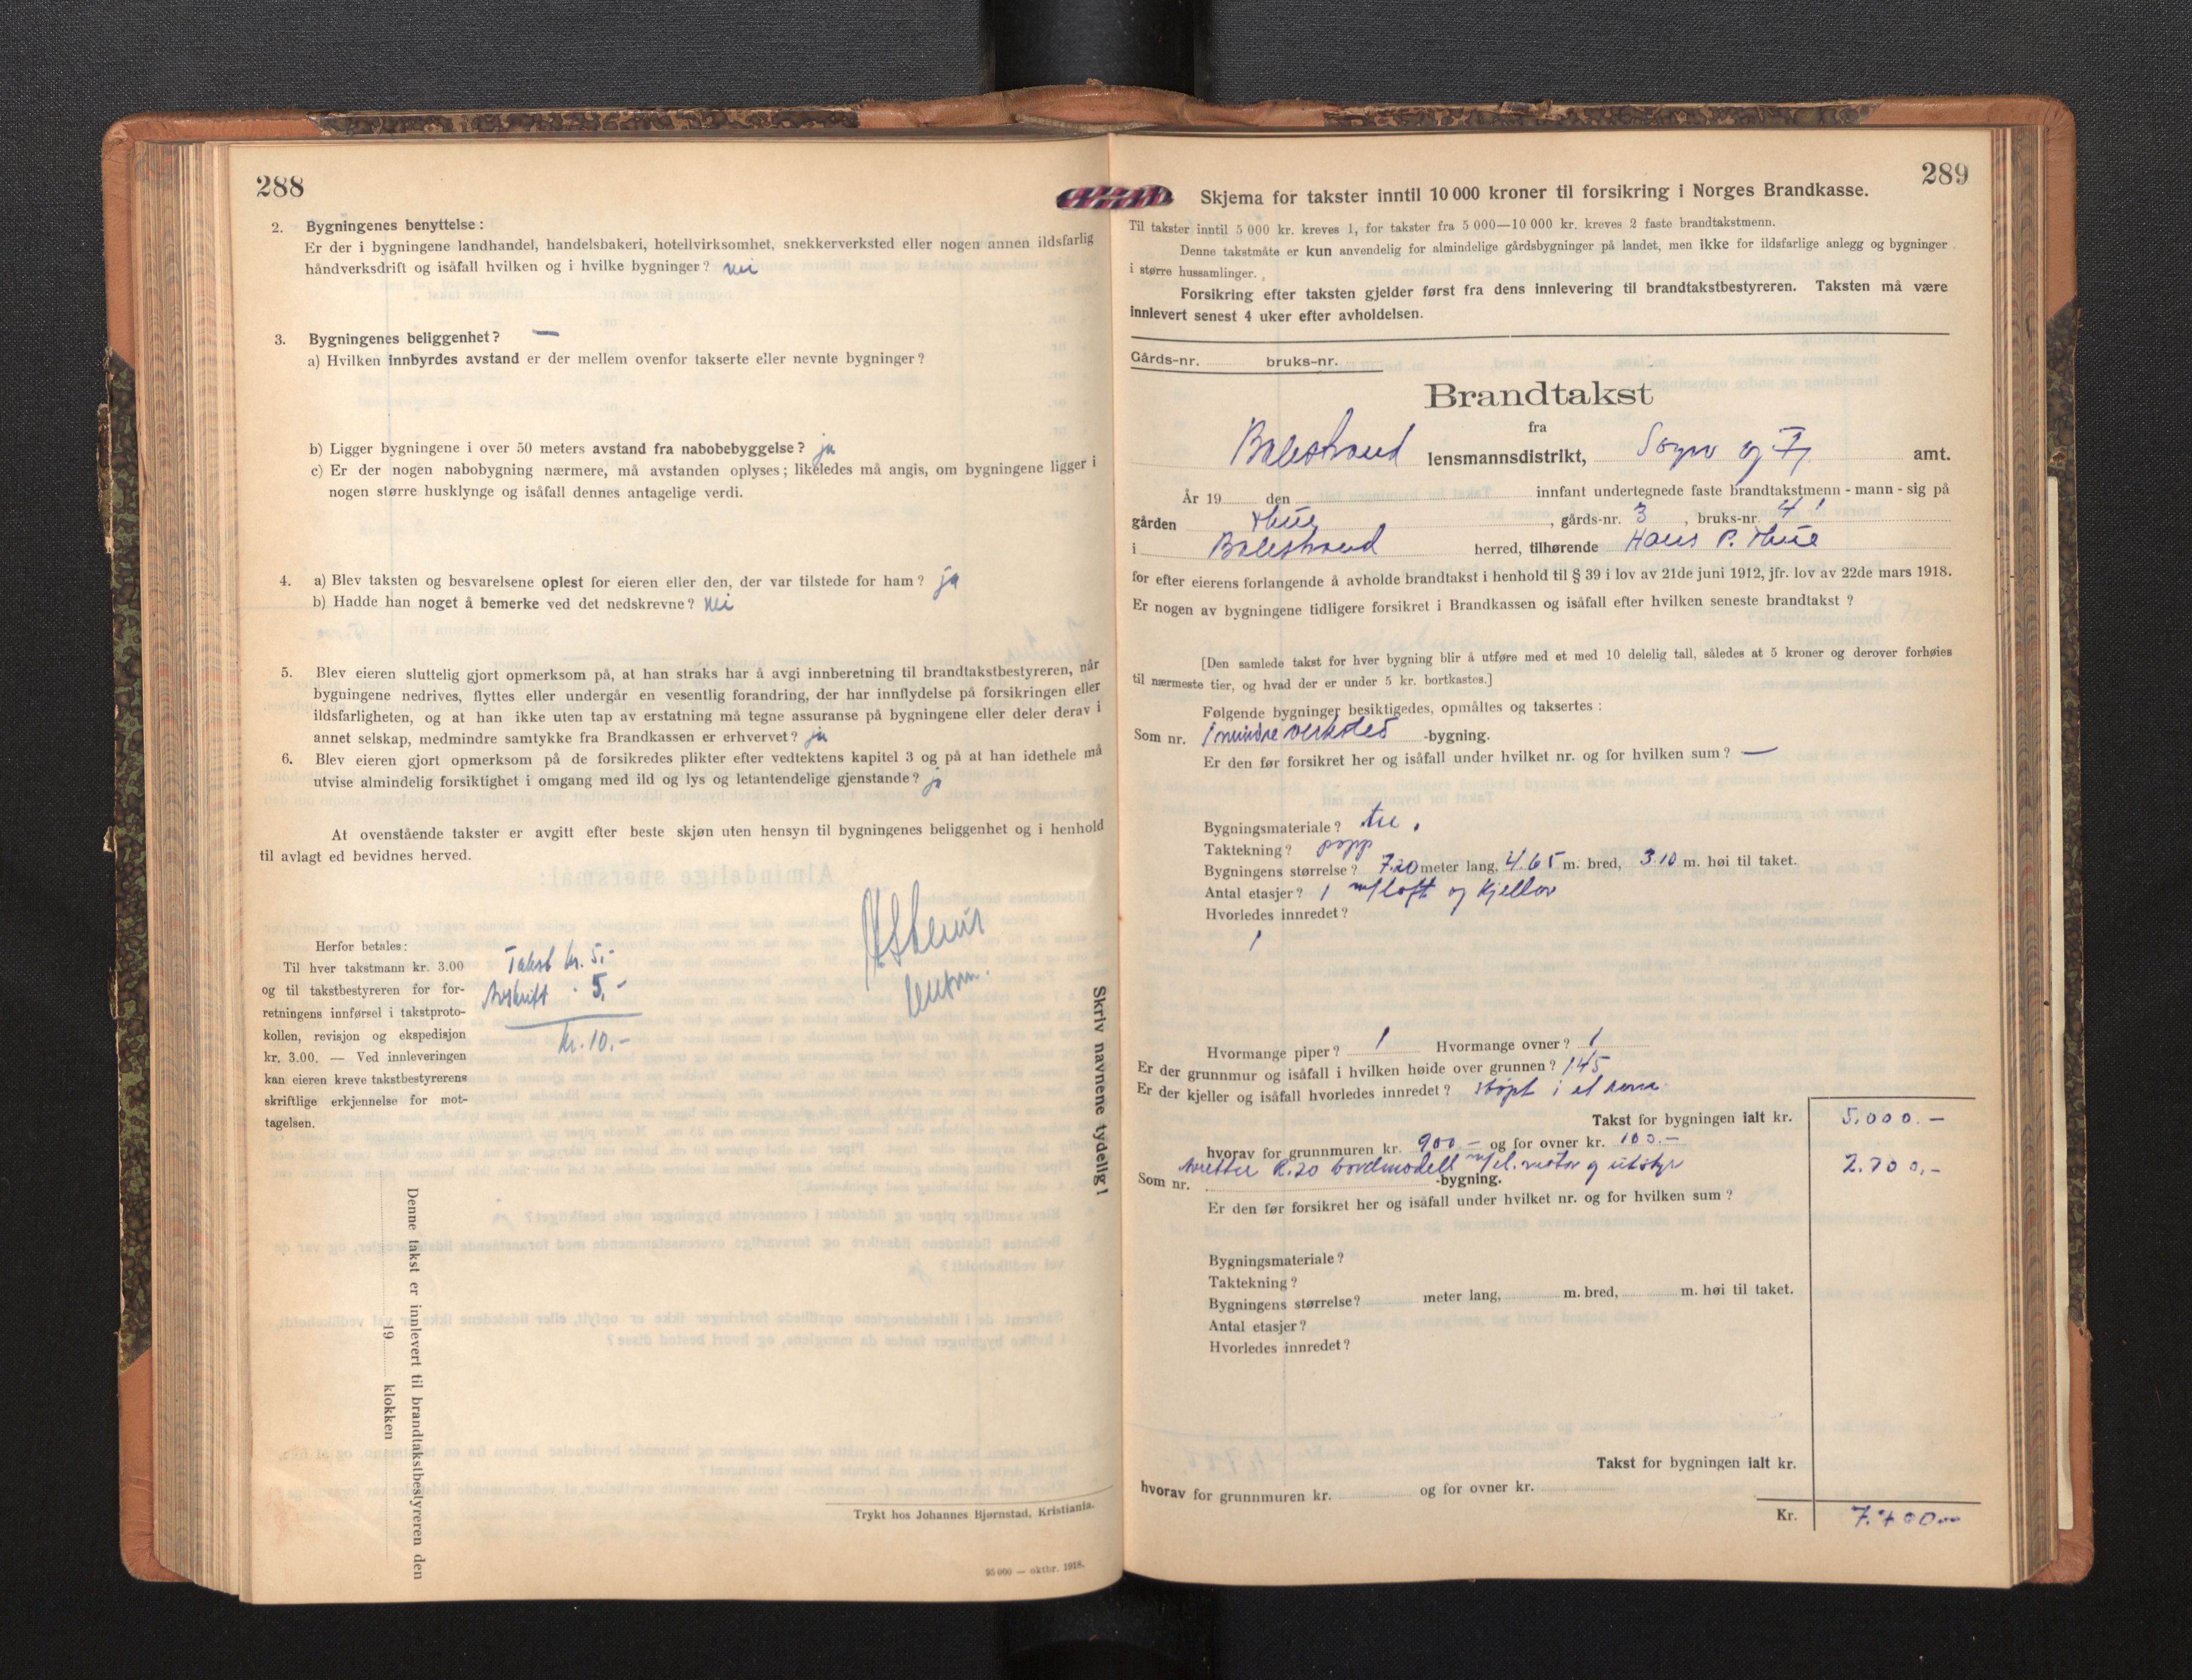 288
2. Bygningenes benyttelse:
Er der i bygningene landhandel, handelsbakeri, hotellvirksomhet, snekkerverksted eller nogen annen ildsfarlig
håndverksdrift og isåfall hvilken og i hvilke bygninger? nei
3. Bygningenes beliggenhet? —
a) Hvilken innbyrdes avstand er der mellem ovenfor takserte eller nevnte bygninger?
b) Ligger bygningene i over 50 meters avstand fra nabobebyggelse? ja
c) Er der nogen nabobygning nærmere, må avstanden oplyses; likeledes må angis, om bygningene ligger i
nogen større husklynge og isåfall dennes antagelige verdi.
4. a) Blev taksten og besvarelsene oplest for eieren eller den, der var tilstede for ham? ja
b) Hadde han noget å bemerke ved det nedskrevne? nei
5. Blev eieren sluttelig gjort opmerksom på, at han straks har å avgi innberetning til brandtakstbestyreren, når
bygningene nedrives, flyttes eller undergår en vesentlig forandring, der har innflydelse på forsikringen eller
ildsfarligheten, og at han ikke uten tap av erstatning må tegne assuranse på bygningene eller deler derav i
annet selskap, medmindre samtykke fra Brandkassen er erhvervet? ja
6. Blev eieren gjort opmerksom på de forsikredes plikter efter vedtektens kapitel 3 og på at han idethele må
utvise almindelig forsiktighet i omgang med ild og lys og letantendelige gjenstande? ja
At ovenstående takster er avgitt efter beste skjøn uten hensyn til bygningenes beliggenhet og i henhold
til avlagt ed bevidnes herved.
Herfor betales:
Til hver takstmann kr. 3.00
og til takstbestyreren for for-
retningens innførsel i takstproto-
kollen, revisjon og ekspedisjon
kr. 3.00. — Ved innleveringen
kan eieren kreve takstbestyrerens
skriftlige erkjennelse for mot-
tagelsen.
Takst kr. 5,-
Avskrift - 5,-
kr. 10.-
Skriv navnene tydelig!
Denne takst er innlevert til brandtakstbestyreren den
19 klokken
Trykt hos Johannes Bjørnstad, Kristiania.
95 000 — oktbr. 1918.
289
Skjema for takster inntil 10 000 kroner til forsikring i Norges Brandkasse.
Til takster inntil 5 000 kr. kreves 1, for takster fra 5 000—10 000 kr. kreves 2 faste brandtakstmenn.
Denne takstmåte er kun anvendelig for almindelige gårdsbygninger på landet, men ikke for ildsfarlige anlegg og bygninger
i større hussamlinger.
Forsikring efter taksten gjelder først fra dens innlevering til brandtakstbestyreren. Taksten må være
innlevert senest 4 uker efter avholdelsen.
Gårds-nr. bruks-nr.
Brandtakst
fra
Balestrand lensmannsdistrikt, Sogn og Fj amt.
År 19 den innfant undertegnede faste brandtakstmenn - mann - sig på
gården Thue, gårds-nr. 3, bruks-nr. 4
i Balestrand herred, tilhørende Hans P. Thue
for efter eierens forlangende å avholde brandtakst i henhold til § 39 i lov av 21de juni 1912, jfr. lov av 22de mars 1918.
Er nogen av bygningene tidligere forsikret i Brandkassen og isåfall efter hvilken seneste brandtakst?
[Den samlede takst for hver bygning blir å utføre med et med 10 delelig tall, således at 5 kroner og derover forhøies
til nærmeste tier, og hvad der er under 5 kr. bortkastes.]
Følgende bygninger besiktigedes, opmåltes og taksertes:
Som nr. 1 mindre verksted -bygning.
Er den før forsikret her og isåfall under hvilket nr. og for hvilken sum? —
Bygningsmateriale? tre.
Taktekning? papp
Bygningens størrelse? 7.20 meter lang, 4.65 m. bred, 3.10 m. høi til taket.
Antal etasjer? 1 m/loft og kjeller
Hvorledes innredet?
1
Hvormange piper? 1 Hvormange ovner? 1
Er der grunnmur og isåfall i hvilken høide over grunnen? 1.45
Er der kjeller og isåfall hvorledes innredet? støpt i et
Takst for bygningen ialt kr. 5.000.-
hvorav for grunnmuren kr. 900.- og for ovner kr. 100.-
R.20 bordmodell m/el.motor og utstyr 2.700,-
Som nr. -bygning.
Er den før forsikret her og isåfall under hvilket nr. og for hvilken sum?
Bygningsmateriale?
Taktekning?
Bygningens størrelse? meter lang, m. bred, m. høi til taket.
Antal etasjer?
Hvorledes innredet?
Takst for bygningen ialt kr.
hvorav for grunnmuren kr. og for ovner kr.
Kr.